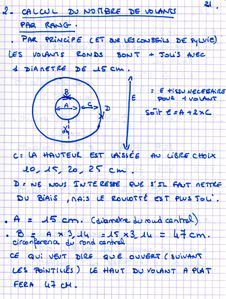 21.
2. CALCUL DU NOMBRE DE VOLANTS
PAR RANG.
. PAR PRINCIPE (ET SUR LES CONSEILS DE SYLVIE)
LES VOLANTS RONDS SONT + JOLIS AVEC
1 DIAMETRE DE 15 CM.
B
A
C
D
E
E = TISSU NECESSAIRE
POUR 1 VOLANT
SOIT E = A + 2 x C
C : LA HAUTEUR EST LAISSÉE AU LIBRE CHOIX
10, 15, 20, 25 CM.
D = NE NOUS INTERESSE QUE S'IL FAUT METTRE
DU BIAIS, MAIS LE ROULOTTÉ EST PLUS JOLI.
. A = 15 cm. (diamètre du rond central)
. B = A x 3,14 = 15 x 3,14 = 47 cm.
circonférence du rond central
CE QUI VEUT DIRE QUE OUVERT (SUIVANT
LES POINTILLÉS) LE HAUT DU VOLANT A PLAT
FERA 47 CM.